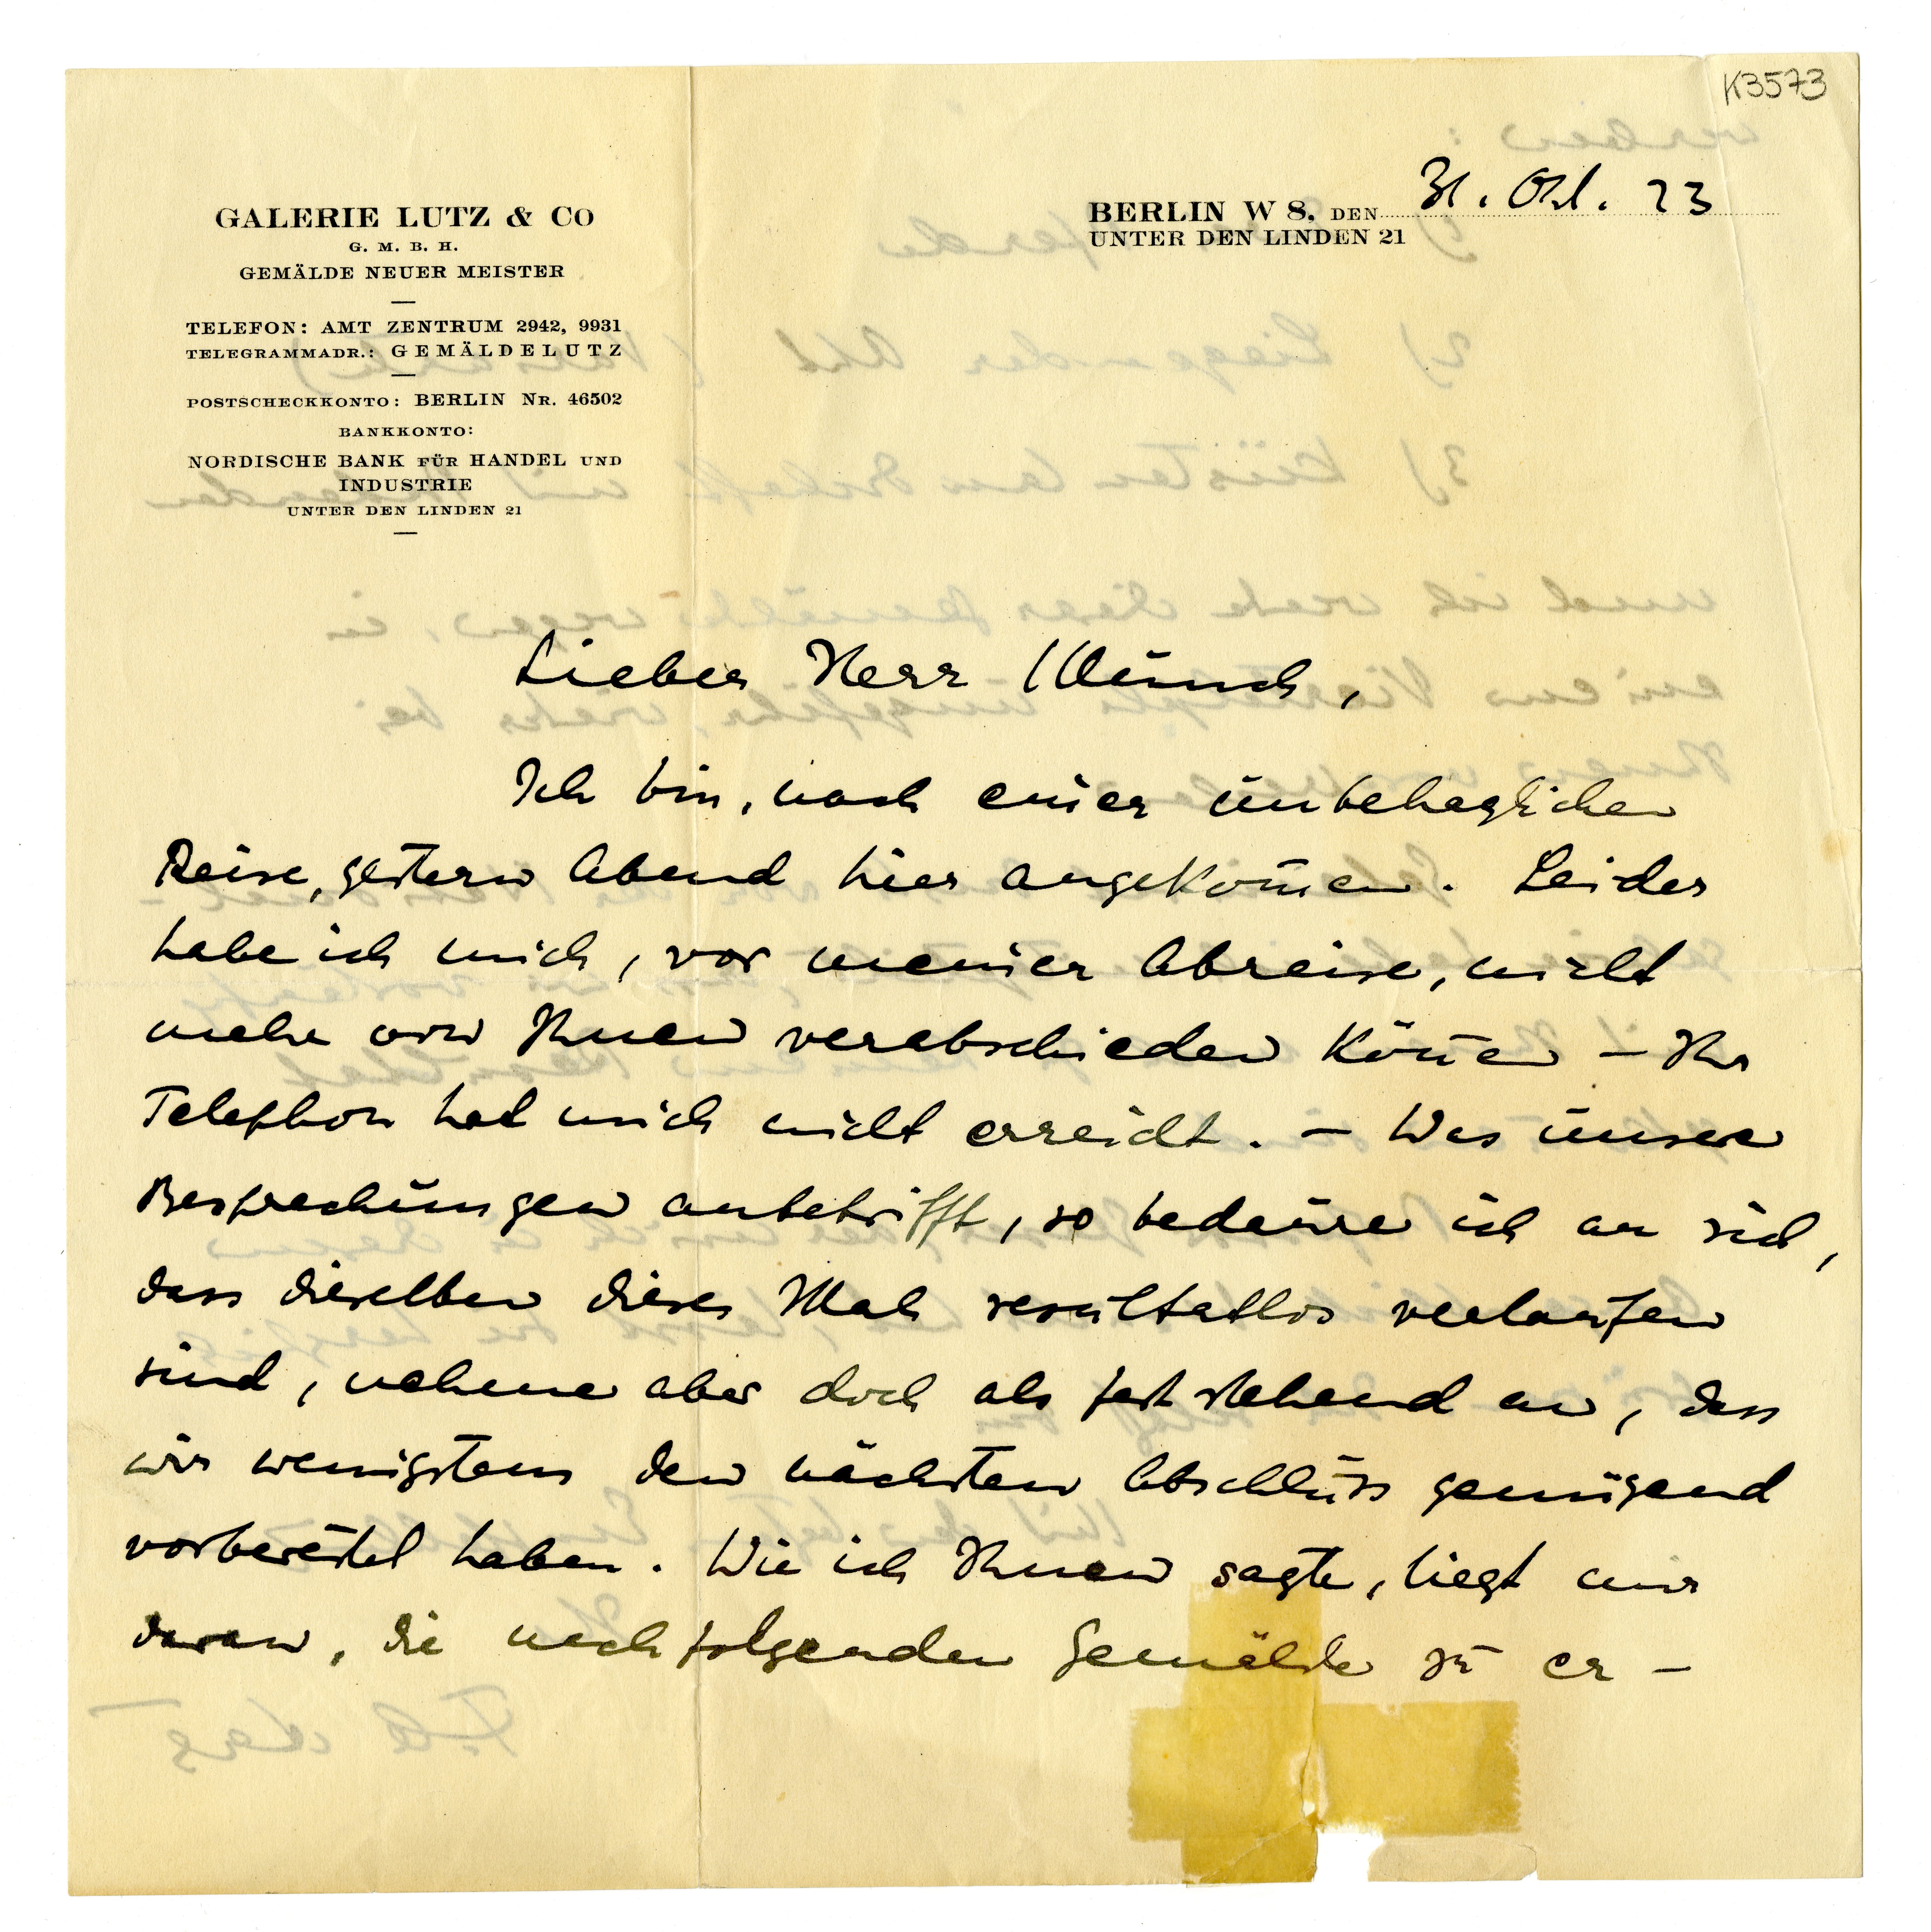 K3573
GALERIE LUTZ & CO
G. M. B. H.
GEMÄLDE NEUER MEISTER
TELEFON: AMT ZENTRUM 2942, 9931
TELEGRAMMADR.: GEMÄLDELUTZ
POSTSCHECKKONTO: BERLIN NR. 46502
BANKKONTO:
NORDISCHE BANK FÜR HANDEL UND
INDUSTRIE
UNTER DEN LINDEN 21
BERLIN W 8, DEN 31. Okt. 23
UNTER DEN LINDEN 21
Lieber Herr Münch,
Ich bin, nach einer unbehaglichen
Reise, gestern Abend hier angekom̄en. Leider
habe ich mich, vor meiner Abreise, nicht
mehr von Ihnen verabschieden kön̄en – Ihr
Telephon hat mich nicht erreicht. – Was unsere
Besprechungen anbetrifft, so bedaure ich an sich,
dass dieselben dieses Mal resultatlos verlaufen
sind, nehme aber doch als feststehend an, dass
wir wenigstens den nächsten Abschluss genügend
vorbereitet haben. Wie ich Ihnen sagte, liegt mir
daran, die nachfolgenden Gemälde zu er –